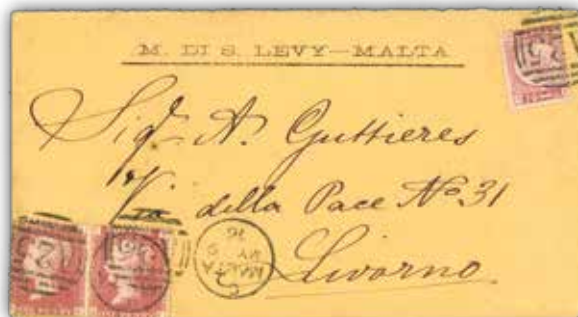 M. DI S. LEVY—MALTA
Sigr A. Guttieres
Via della Pace No. 31
Livorno
MALTA
MY 9
76